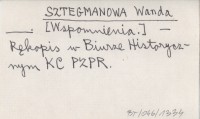 SZTEGMANOWA Wanda
[Wspomnienia.] —
Rękopis w Biurze Historycz-
nym KC PZPR.